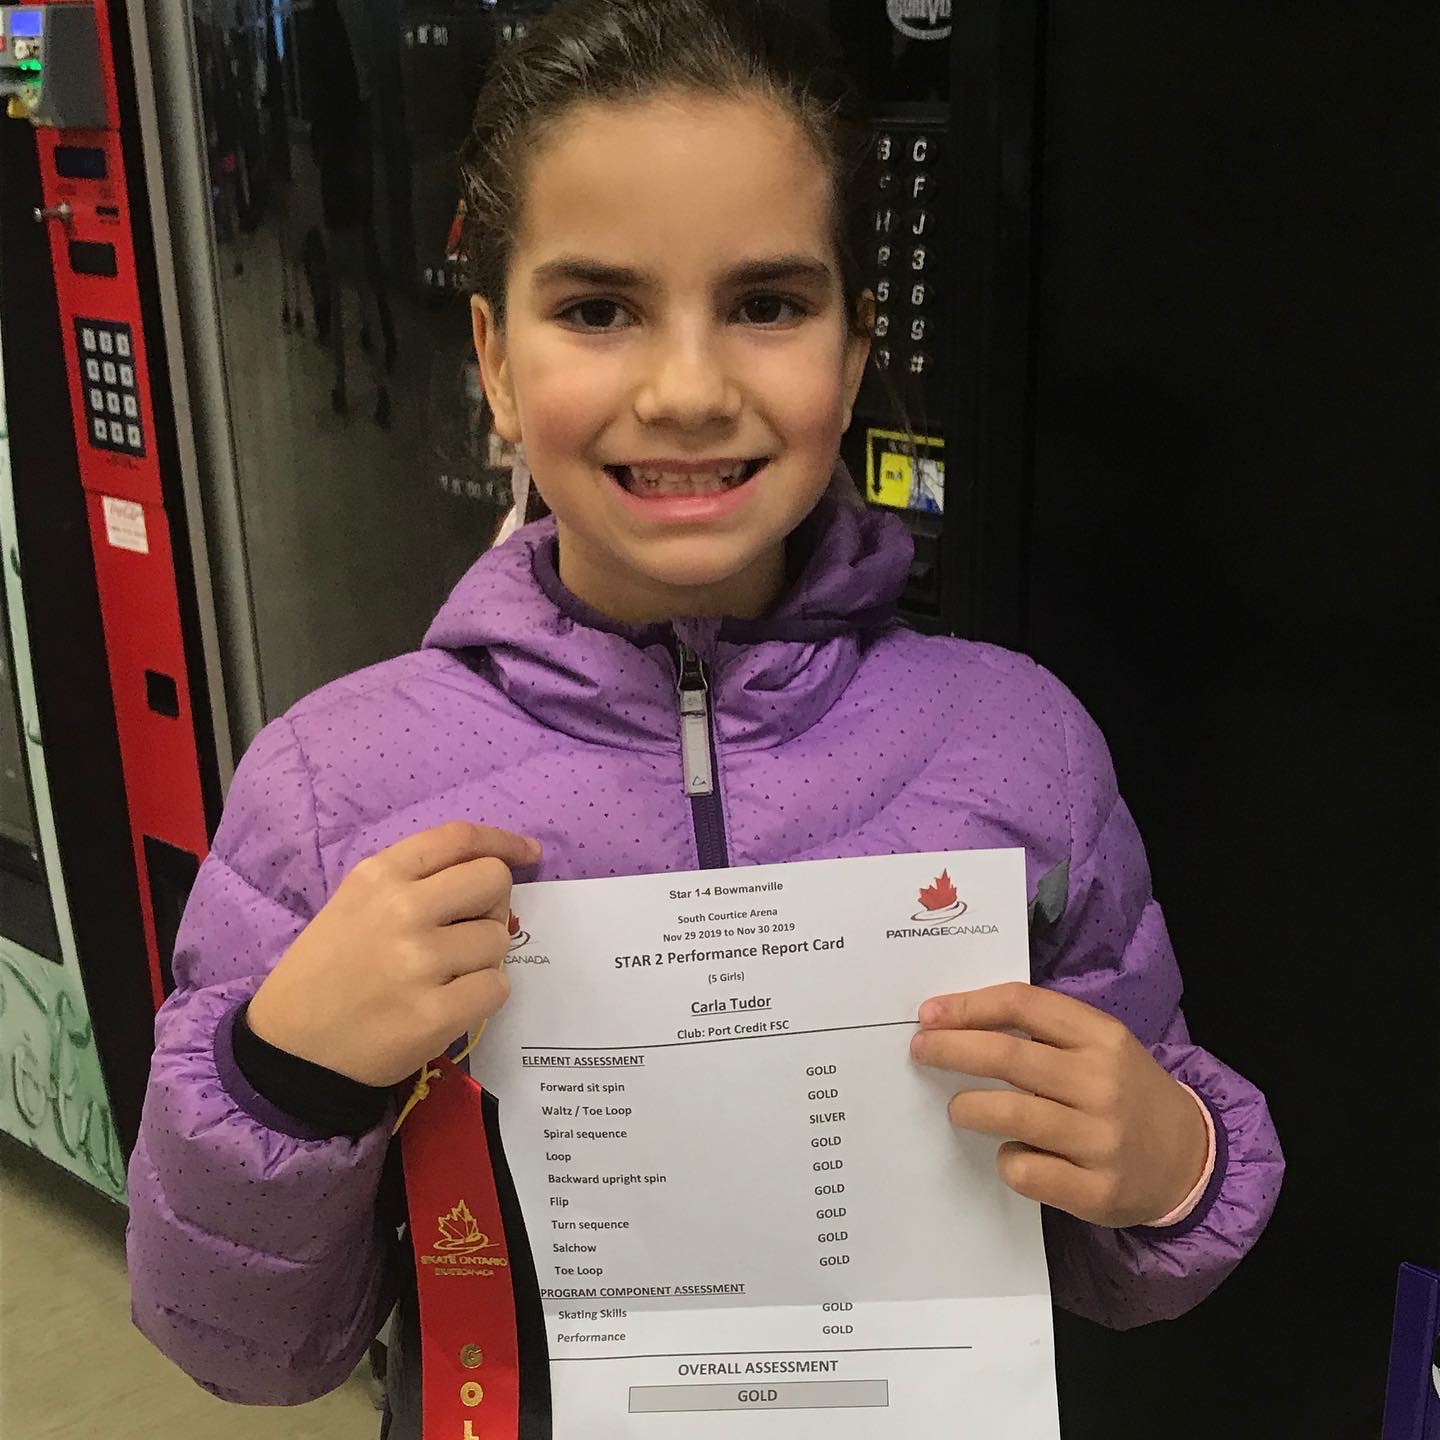 B C
F
J
3
5 6
9
#
Star 1-4 Bowmanville
South Courtice Arena
Nov 29 2019 to Nov 30 2019
CANADA
PATINAGECANADA
STAR 2 Performance Report Card
(5 Girls)
Carla Tudor
Club: Port Credit FSC
ELEMENT ASSESSMENT
Forward sit spin GOLD
Waltz / Toe Loop GOLD
Spiral sequence SILVER
Loop GOLD
Backward upright spin GOLD
Flip GOLD
Turn sequence GOLD
Salchow GOLD
Toe Loop GOLD
PROGRAM COMPONENT ASSESSMENT
Skating Skills GOLD
Performance GOLD
OVERALL ASSESSMENT
GOLD
SKATE ONTARIO
SKATECANADA
GOL